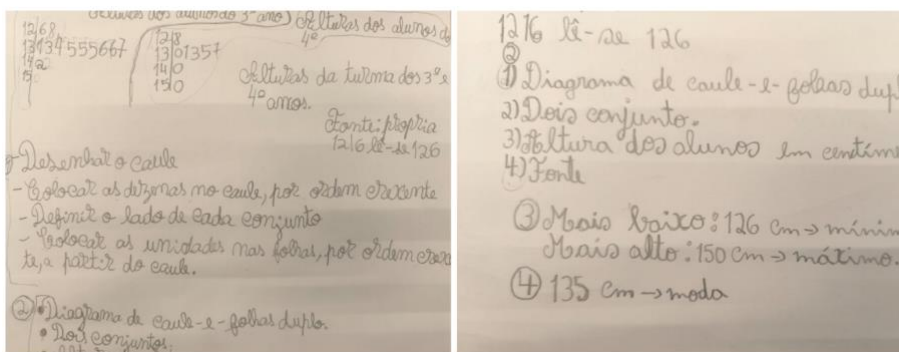 Alturas dos alunos do 3º ano
Alturas dos alunos do
4º
12|68
13|134555667
14|2
15|
12|8
13|01357
14|0
15|0
Alturas da turma dos 3º e
4º anos.
Fonte: própria
12|6 lê-se 126
- Desenhar o caule
- Colocar as dezenas no caule, por ordem crescente
- Definir o lado de cada conjunto
- Colocar as unidades nas folhas, por ordem
te, a partir do caule.
② • Diagrama de caule-e-folhas duplo.
• Dois conjuntos.
12|6 lê-se 126
②
1) Diagrama de caule-e-folhas dupl
2) Dois conjunto.
3) Altura dos alunos em centím
4) Fonte
③ Mais baixo: 126 cm → mínim
Mais alto: 150 cm → máximo.
④ 135 cm → moda